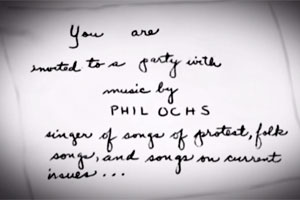 You are
invited to a party with
music by
PHIL OCHS
singer of songs of protest, folk
songs, and songs on current
issues...